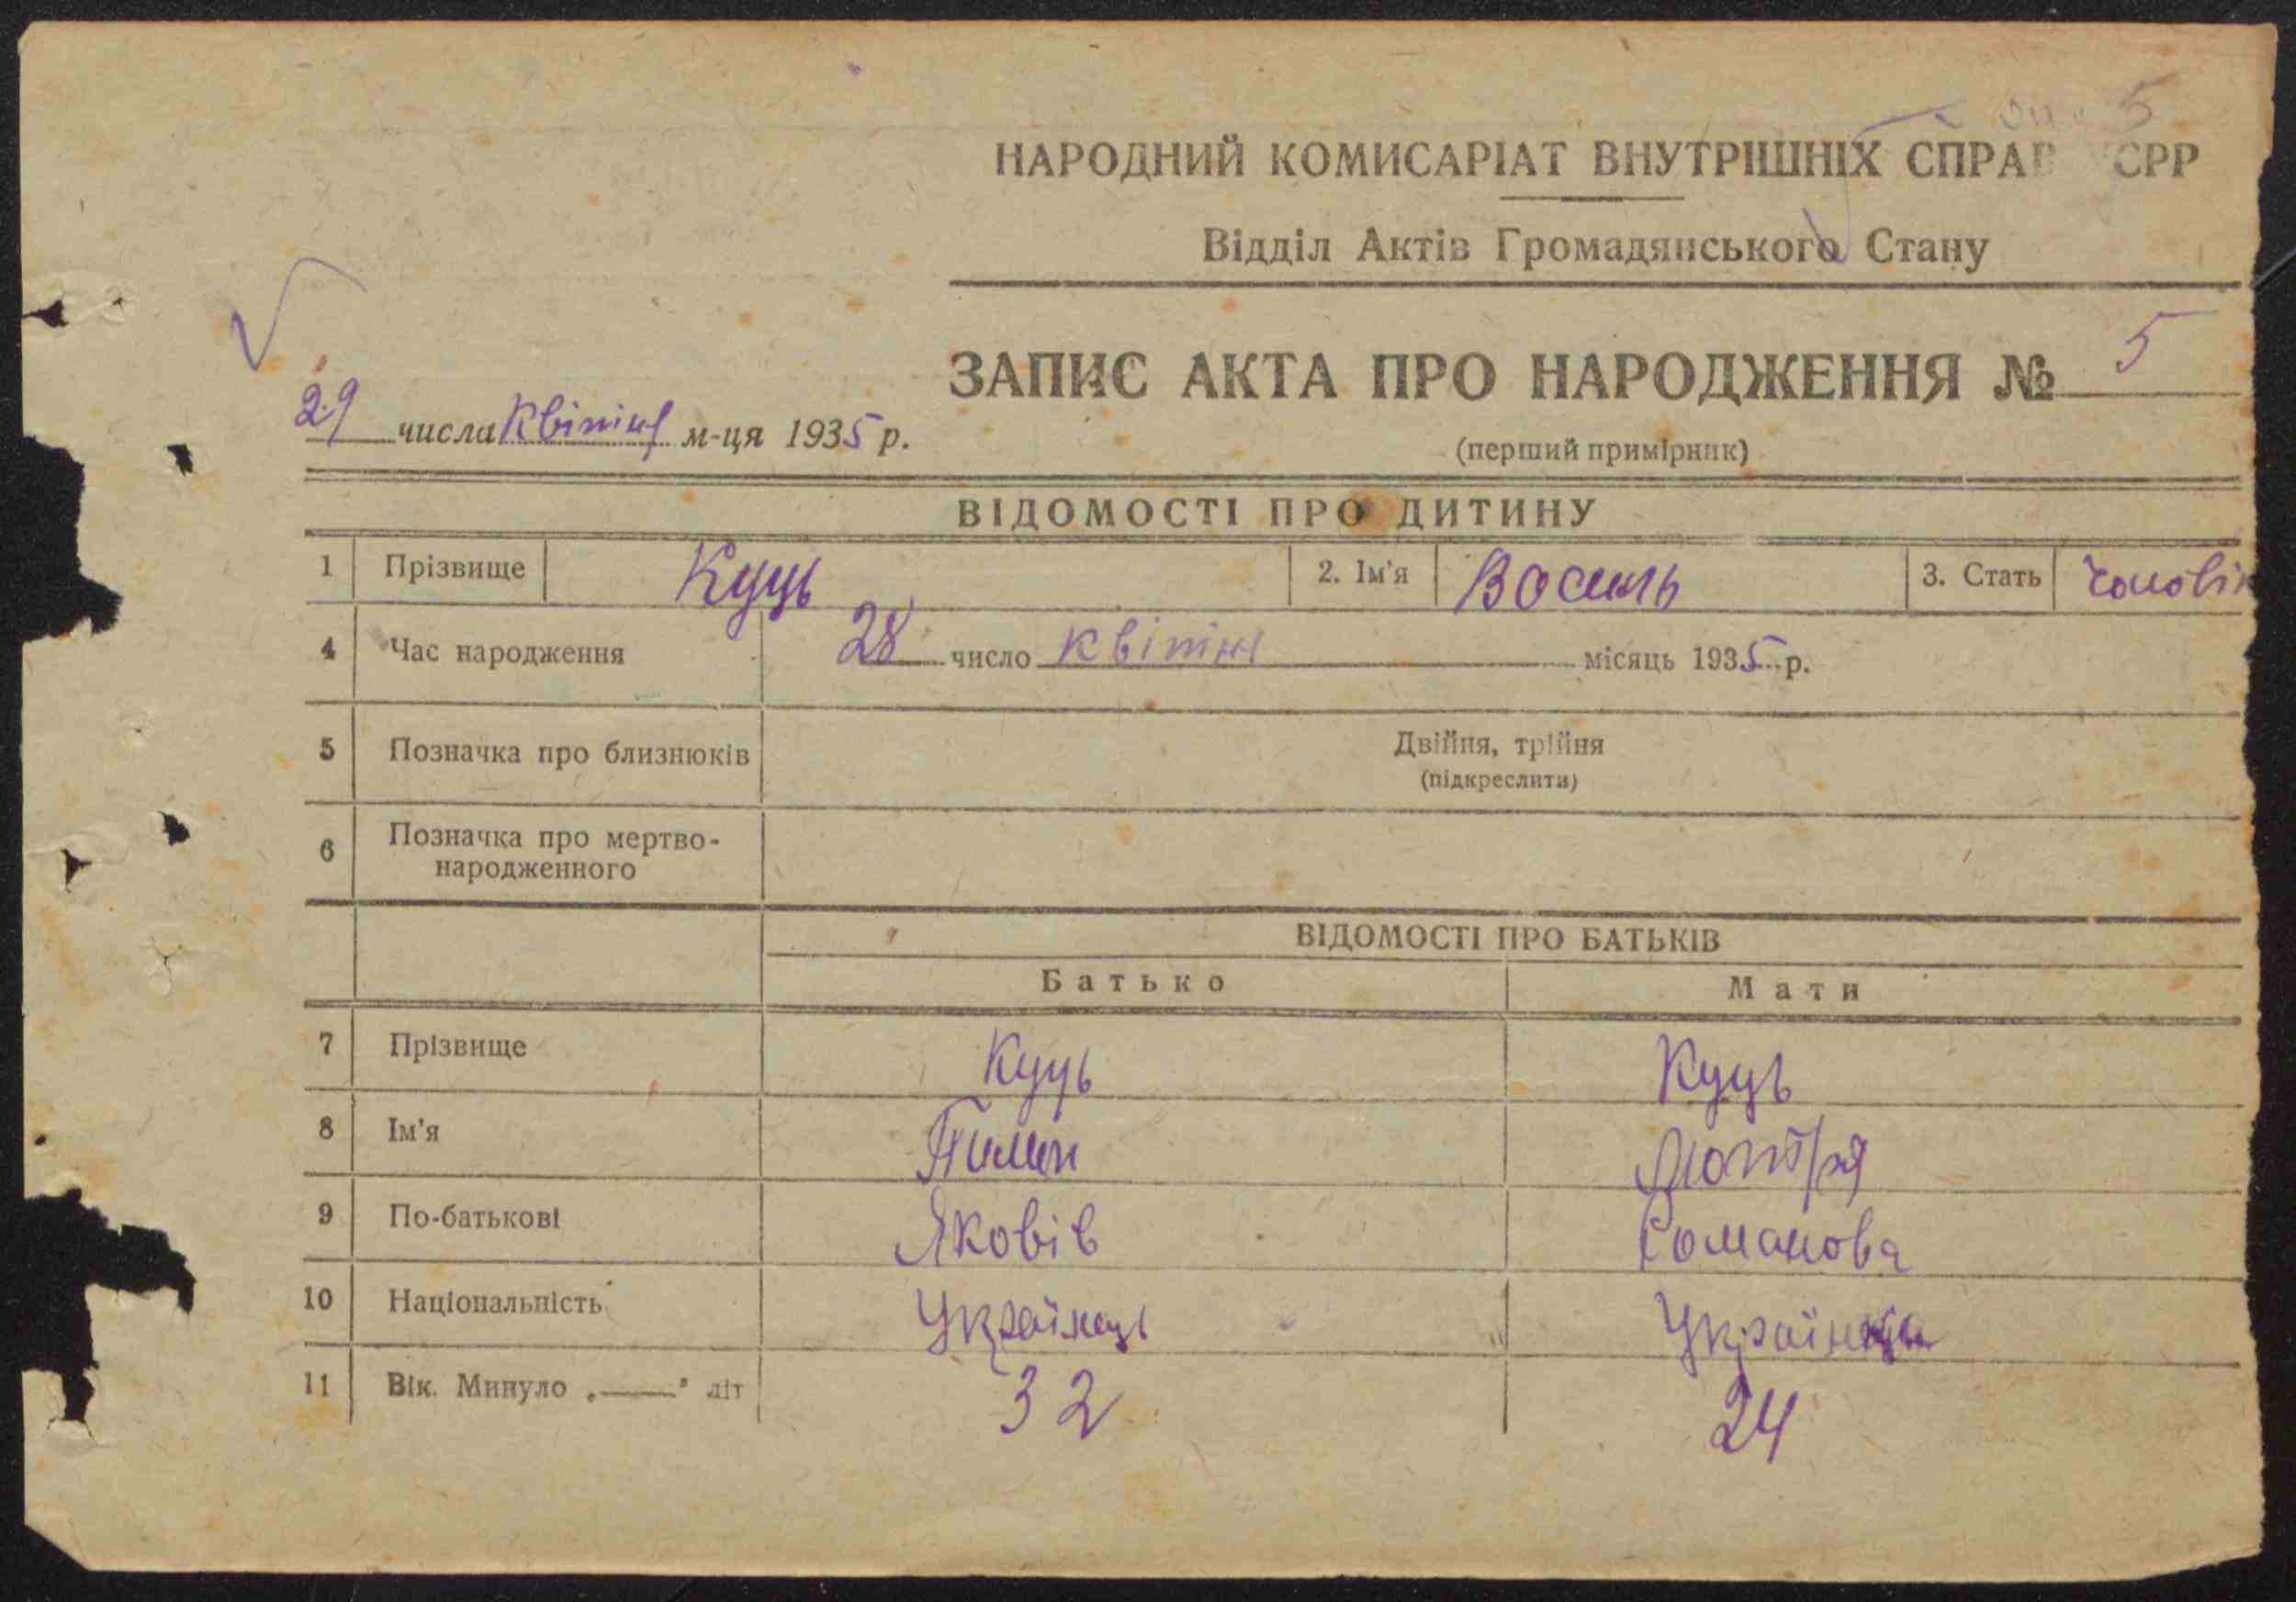 5
НАРОДНИЙ КОМИСАРІАТ ВНУТРІШНІХ СПРАВ УСРР
Відділ Актів Громадянського Стану
ЗАПИС АКТА ПРО НАРОДЖЕННЯ № 5
29 числа квітня м-ця 1935 р.
(перший примірник)
ВІДОМОСТІ ПРО ДИТИНУ
1 Прізвище Куць 2. Ім'я Василь 3. Стать чоловік
4 Час народження 28 число квітня місяць 1935 р.
5 Позначка про близнюків Двійня, трійня
(підкреслити)
6 Позначка про мертво-
народженного
ВІДОМОСТІ ПРО БАТЬКІВ
Батько Мати
7 Прізвище Куць Куць
8 Ім'я Пилип Мотря
9 По-батькові Яковів Романова
10 Національність Українець Українка
11 Вік. Минуло „—" літ 32 24